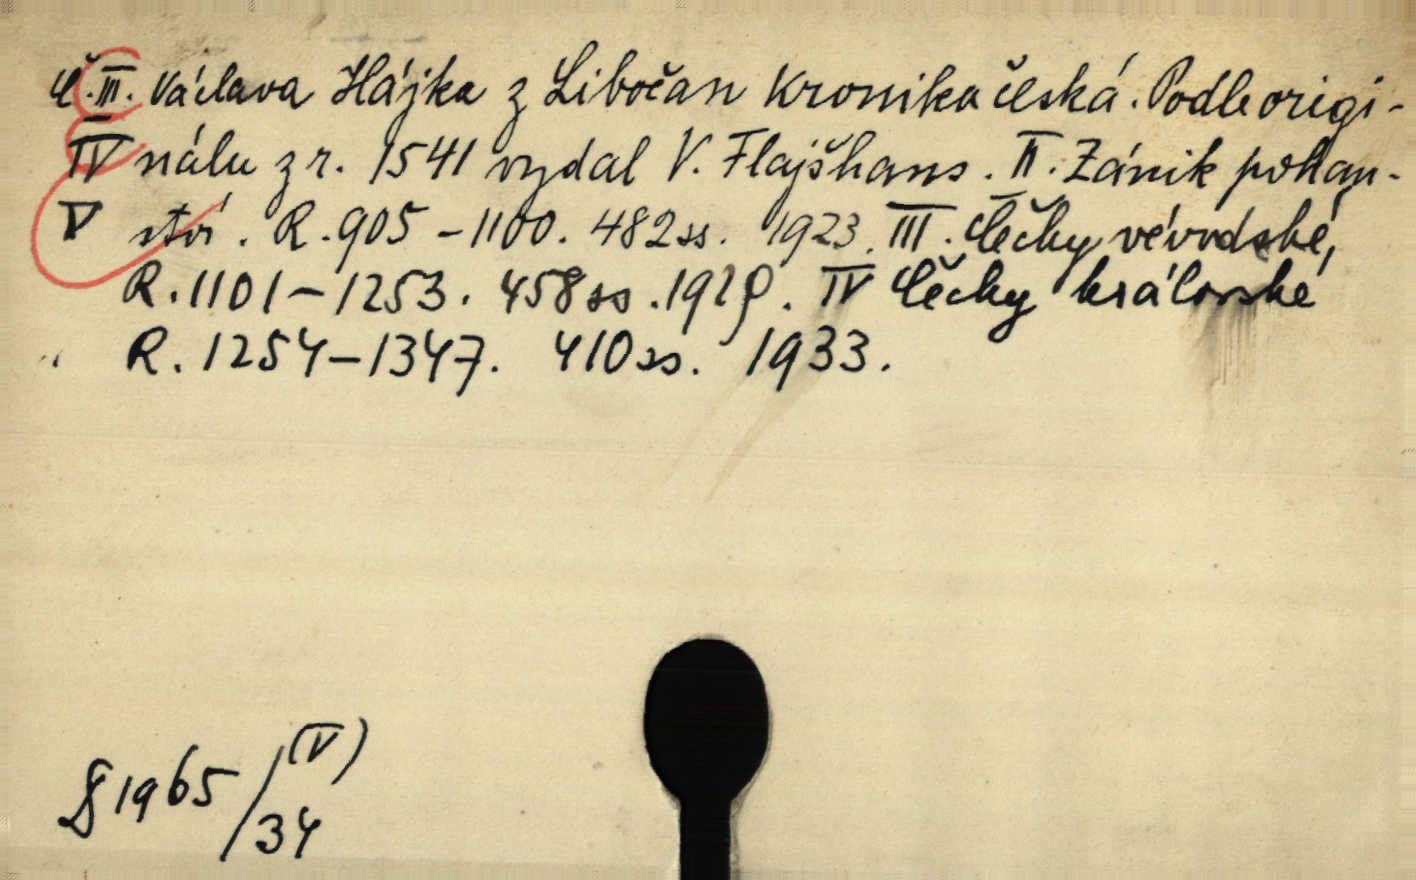 Č. III. Václava Hájka z Libočan Kronika česká. Podle origi-
IV nálu z r. 1541 vydal V. Flajšhans. II. Zánik pohan-
V ství. R. 905 - 1100. 482 ss. 1923. III. Čechy vévodské,
R. 1101 - 1253. 458 ss. 1929. IV Čechy královské
R. 1254 - 1347. 410 ss. 1933.
1965/34 (V)